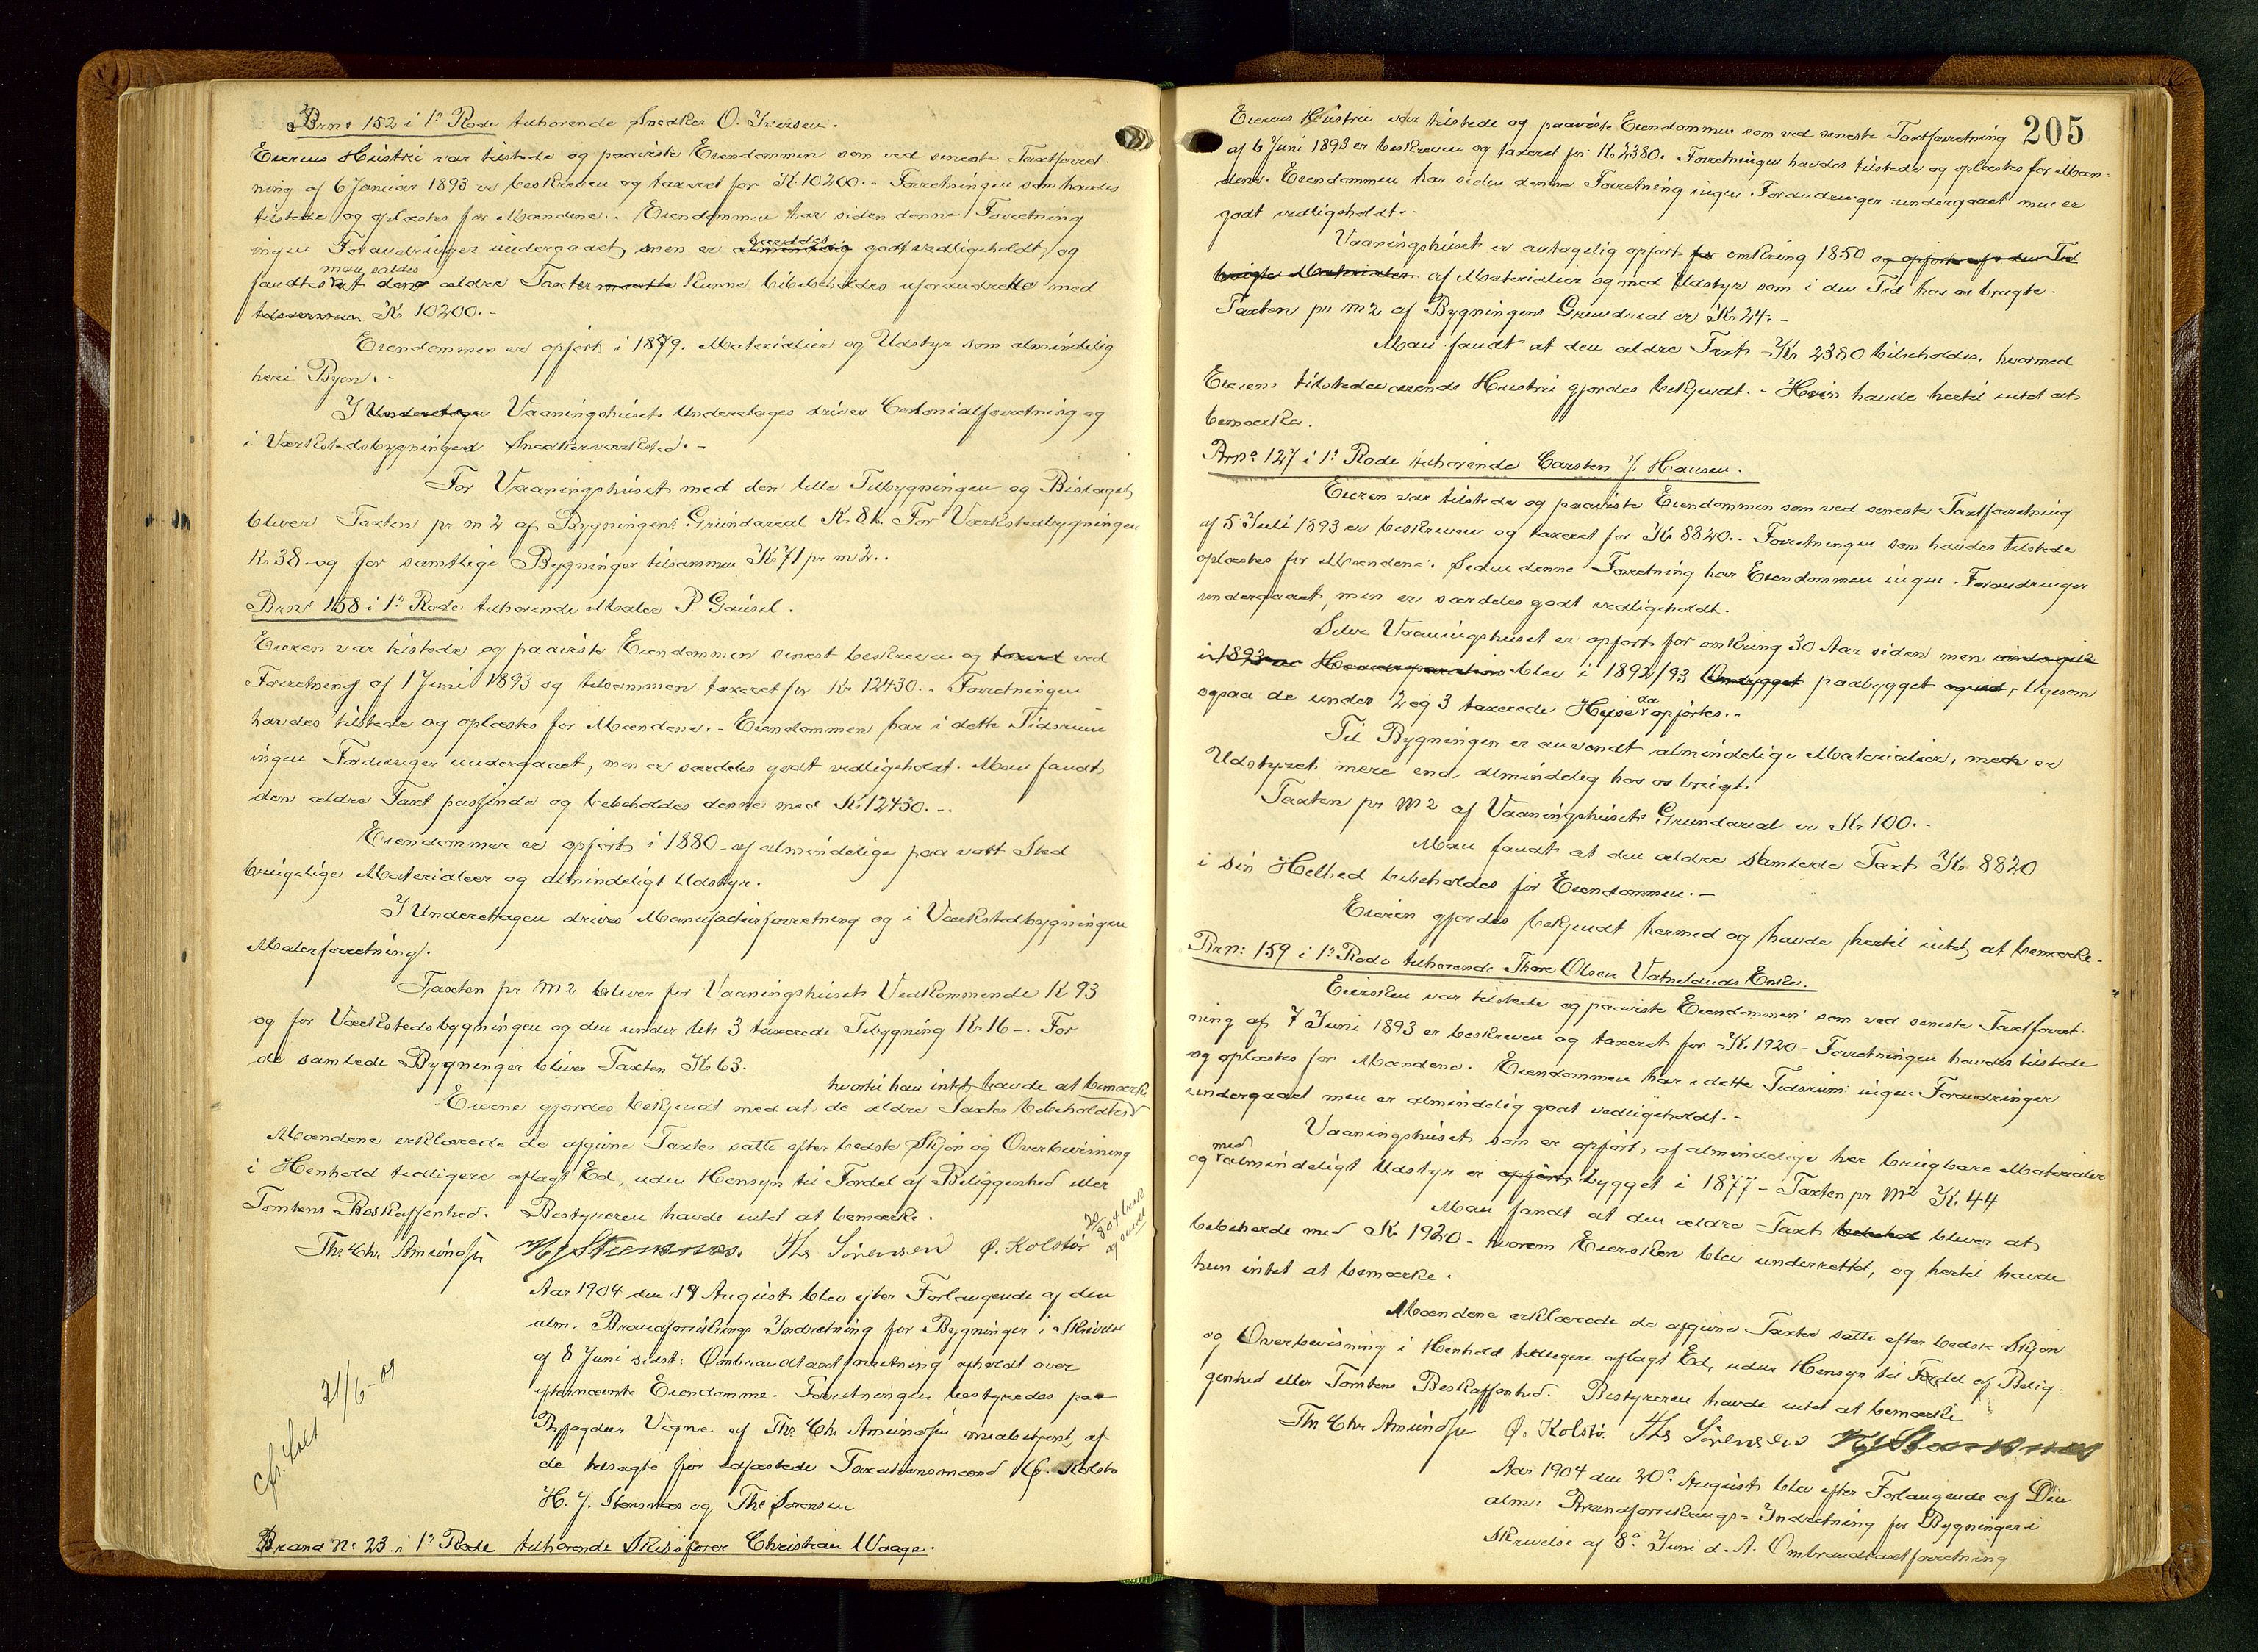 Brn: 152 i 1ᵉ Rode tilhørende Snedker O. Iversen.
Eierens Hustru var tilstede og paaviste Eiendommen som ved seneste Taxtforret-
ning af 6 Januar 1893 er beskreven og taxeret for Kr 10200.- Forretningen som havdes
tilstede og oplæstes for Mændene. Eiendommen har siden denne Forretning
ingen Forandringer undergaaet, men er særdeles godt vedligeholdt, og
fandtes man saldes at den ældre Taxter kunne bibeholdes uforandrette med
Kr 10200.-
Eiendommen er opført i 1879. Materialier og Udstyr som almindelig
her i Byen.-
I Underetagen Vaaningshusets Underetages drives Colonialforretning og
i Værkstedsbygningen Snedkerværksted.-
For Vaaningshuset med den lille Tilbygningen og Bislaget
bliver Taxten pr m2 af Bygningens Grundareal Kr 81. For Værkstedbygningen
Kr 38.- og for samtlige Bygninger tilsammen Kr 71 pr m2.
Brn: 158 i 1ᵉ Rode tilhørende Maler P. Gausel.
Eieren var tilstede og paaviste Eiendommen senest beskreven og taxeret ved
Forretning af 1 Juni 1893 og tilsammen taxeret for Kr 12430.- Forretningen
havdes tilstede og oplæstes for Mændene.- Eiendommen har i dette Tidsrum
ingen Forandringer undergaaet, men er særdeles godt vedligeholdt. Man fandt
den ældre Taxt passende og bibeholdes denne med Kr. 12430.-
Eiendommen er opført i 1880 af almindelige paa vort Sted
brugelige Materialier og almindeligt Udstyr.
I Underetagen drives Manufacturforretning og i Værkstedbygningen
Malerforretning.
Taxten pr M2 bliver for Vaaningshusets Vedkommende K 93
og for Værkstedsbygningen og den under litr 3 taxerede Tilbygning Kr. 16-. For
de samlede Bygninger bliver Taxten Kr 63.
hvortil han intet havde at bemærke
Eierne gjordes bekjendt med at de ældre Taxter bibeholdtes
Mændene erklærede de afgivne Taxter satte efter bedste Skjøn og Overbevisning
i Henhold tidligere aflagt Ed, uden Hensyn til Fordel af Beliggenhed eller
Tomtens Beskaffenhed. Bestyreren havde intet at bemærke.
Thr. Chr. Amundsen H J Stensnæs. Ths Sørensen O. Kolstø
Aar 1904 den 19 August blev efter Forlangende af den
alm. Brandforsikrings Indretning for Bygninger i Skrivelse
af 8 Juni sidst: Ombrandtaxtforretning afholdt over
efternævnte Eiendomme. Forretningen bestyredes paa
Byfogdens Vegne af Thr. Chr. Amundsen medbetjent, af
de tilsagte før edfæstede Taxationsmænd O. Kolstø
H. J. Stensnæs og Ths Sørensen
cfr. 21/6-09
Brand N: 23 i 1ᵉ Rode tilhørende Skibsfører Christian Waage.
205
Eierens Hustru var tilstede og paaviste Eiendommen som ved seneste Taxtforretning
af 6 Juni 1893 er beskreven og taxeret for Kr 2380. Forretningen havdes tilstede og oplæstes for Mæn-
dene. Eiendommen har siden denne Forretning ingen Forandringer undergaaet men er
godt vedligeholdt.-
Vaaningshuset er antagelig opført for omkring 1850 og opført af i den Tid
brugte Materialier af Materialier og med Udstyr som i den Tid hos os brugte.
Taxten pr m2 af Bygningens Grundareal er Kr 24.-
Man fandt at den ældre Taxt Kr 2380 bibeholdes, hvormed
Eierens tilstedeværende Hustru gjordes bekjendt.- Hun havde hertil intet at
bemærke.
Brn: 127 i 1ᵉ Rode tilhørende Carsten J. Hansen.
Eieren var tilstede og paaviste Eiendommen som ved seneste Taxtforretning
af 5 Juli 1893 er beskreven og taxeret for Kr 8820.- Forretningen som havdes tilstede
oplæstes for Mændene. Siden denne Forretning har Eiendommen ingen Forandringer
undergaaet, men er særdeles godt vedligeholdt.
Selve Vaaningshuset er opført for omkring 30 Aar siden men
i 1893 Hovedreparation blev i 1892/93 Ombygget paabygget, ligesom
ogsaa de under 2 og 3 taxerede Huse da opførtes.-
Til Bygningen er anvendt almindelige Materialier, men er
Udstyret mere end almindelig hos os brugt.
Taxten pr M2 af Vaaningshusets Grundareal er Kr. 100.-
Man fandt at den ældre samlede Taxt Kr. 8820
i sin Helhed bibeholdes for Eiendommen.-
Eieren gjordes bekjendt hermed og havde hertil intet at bemærke.
Brn: 159 i 1ᵉ Rode tilhørende Thore Olsen Vatnelands Enke.
Eiersken var tilstede og paaviste Eiendommen som ved seneste Taxtforret-
ning af 7 Juni 1893 er beskreven og taxeret for Kr. 1920- Forretningen havdes tilstede
og oplæstes for Mændene. Eiendommen har i dette Tidsrum ingen Forandringer
undergaaet men er almindelig godt vedligeholdt.-
Vaaningshuset som er opført, af almindelige her brugbare Materialer
og med almindeligt Udstyr er opført bygget i 1877- Taxten pr M2 Kr. 44
Man fandt at den ældre Taxt bibehol bliver at
bibeholde med Kr 1920- hvorom Eiersken blev underrettet, og hertil havde
hun intet at bemærke.
Mændene erklærede de afgivne Taxter satte efter bedste Skjøn
og Overbevisning i Henhold tidligere aflagt Ed, uden Hensyn til Fordel af Belig-
genhed eller Tomtens Beskaffenhed. Bestyreren havde intet at bemærke
Thr. Chr. Amundsen O. Kolstø. Ths Sørensen H J Stensnæs
Aar 1904 den 20ᵈ August blev efter Forlangende af Den
alm: Brandforsikrings-Indretning for Bygninger i
Skrivelse af 8ᵈ Juni d. A. Ombrandtaxtforretning